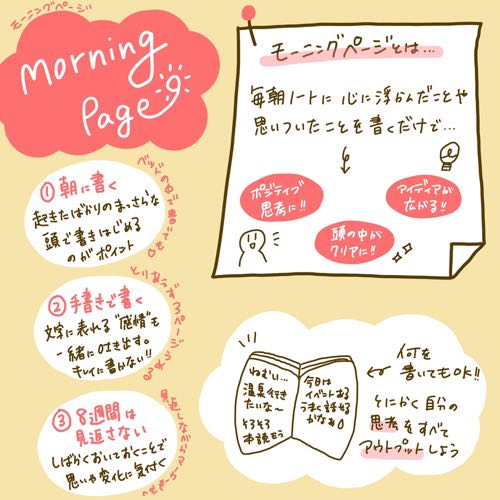 モーニングページ
Morning
Page
モーニングページとは…
毎朝ノートに 心に浮かんだことや
思いついたことを書くだけで…
ポジティブ
思考に!!
アイディアが
広がる!!
頭の中が
クリアに!!
①朝に書く
起きたばかりのまっさらな
頭で書きはじめる
のがポイント
ベッドの中で書いても◎
②手書きで書く
文字に表れる"感情"も
一緒に吐き出す。
キレイに書かない!!
とりあえず3ページ
③8週間は
見返さない
しばらくおいておくことで
思いや変化に気付く
ねむい…
温泉行き
たいな〜
そろそろ
本読もう
今日は
イベントある
うまく話せる
かなぁ
何を
書いてもOK!!
とにかく自分の
思考をすべて
アウトプットしよう